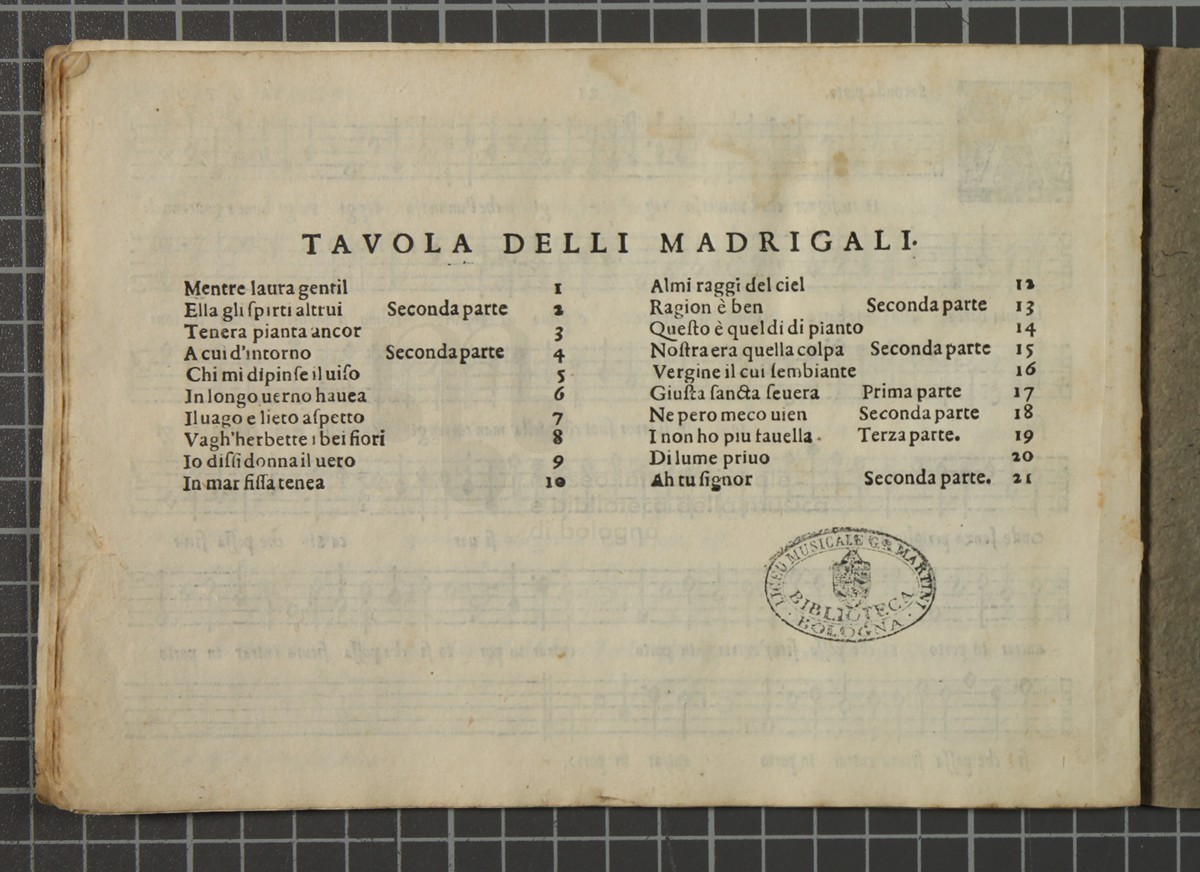 TAVOLA DELLI MADRIGALI.
Mentre laura gentil 1
Ella gli ſpirti altrui Seconda parte 2
Tenera pianta ancor 3
A cui d'intorno Seconda parte 4
Chi mi dipinſe il uiſo 5
In longo uerno hauea 6
Il uago e lieto aſpetto 7
Vagh'herbette i bei fiori 8
Io diſſi donna il uero 9
In mar fiſſa tenea 10
Almi raggi del ciel 12
Ragion è ben Seconda parte 13
Queſto è quel di di pianto 14
Noſtra era quella colpa Seconda parte 15
Vergine il cui ſembiante 16
Giuſta ſancta ſeuera Prima parte 17
Ne pero meco uien Seconda parte 18
I non ho piu fauella. Terza parte. 19
Di lume priuo 20
Ah tu ſignor Seconda parte. 21
e biblioteca della musica
di bologna
LICEO MUSICALE G.B. MARTINI
BIBLIOTECA
BOLOGNA